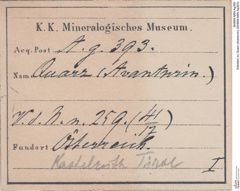 K. K. Mineralogisches Museum.
Acq. Post A. g. 393.
Name Quarz (Avanturin).
V. d. N. n. 259. (41/17)
Fundort Österreich
Kastelruth Tirol
I